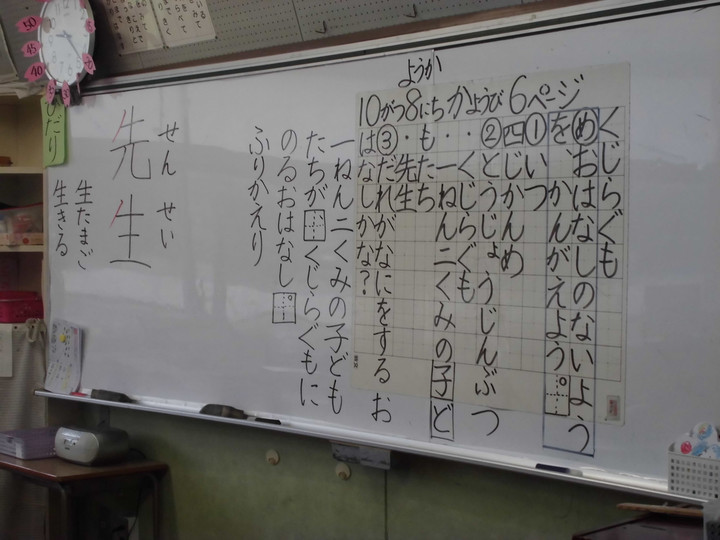 ようか
10がつ8にち かようび 6ページ
くじらぐも
めおはなしのないよう
を、かんがえよう。
①いつ
四じかんめ
②とうじょうじんぶつ
・くじらぐも
・一ねん二くみの子ど
も・たち
・先生
③だれがなにをする お
はなしかな?
一ねん二くみの子ども
たちが くじらぐもに
のるおはなし。
ふりかえり
せん せい
先生
生たまご
生きる
ひだり
50
45
40